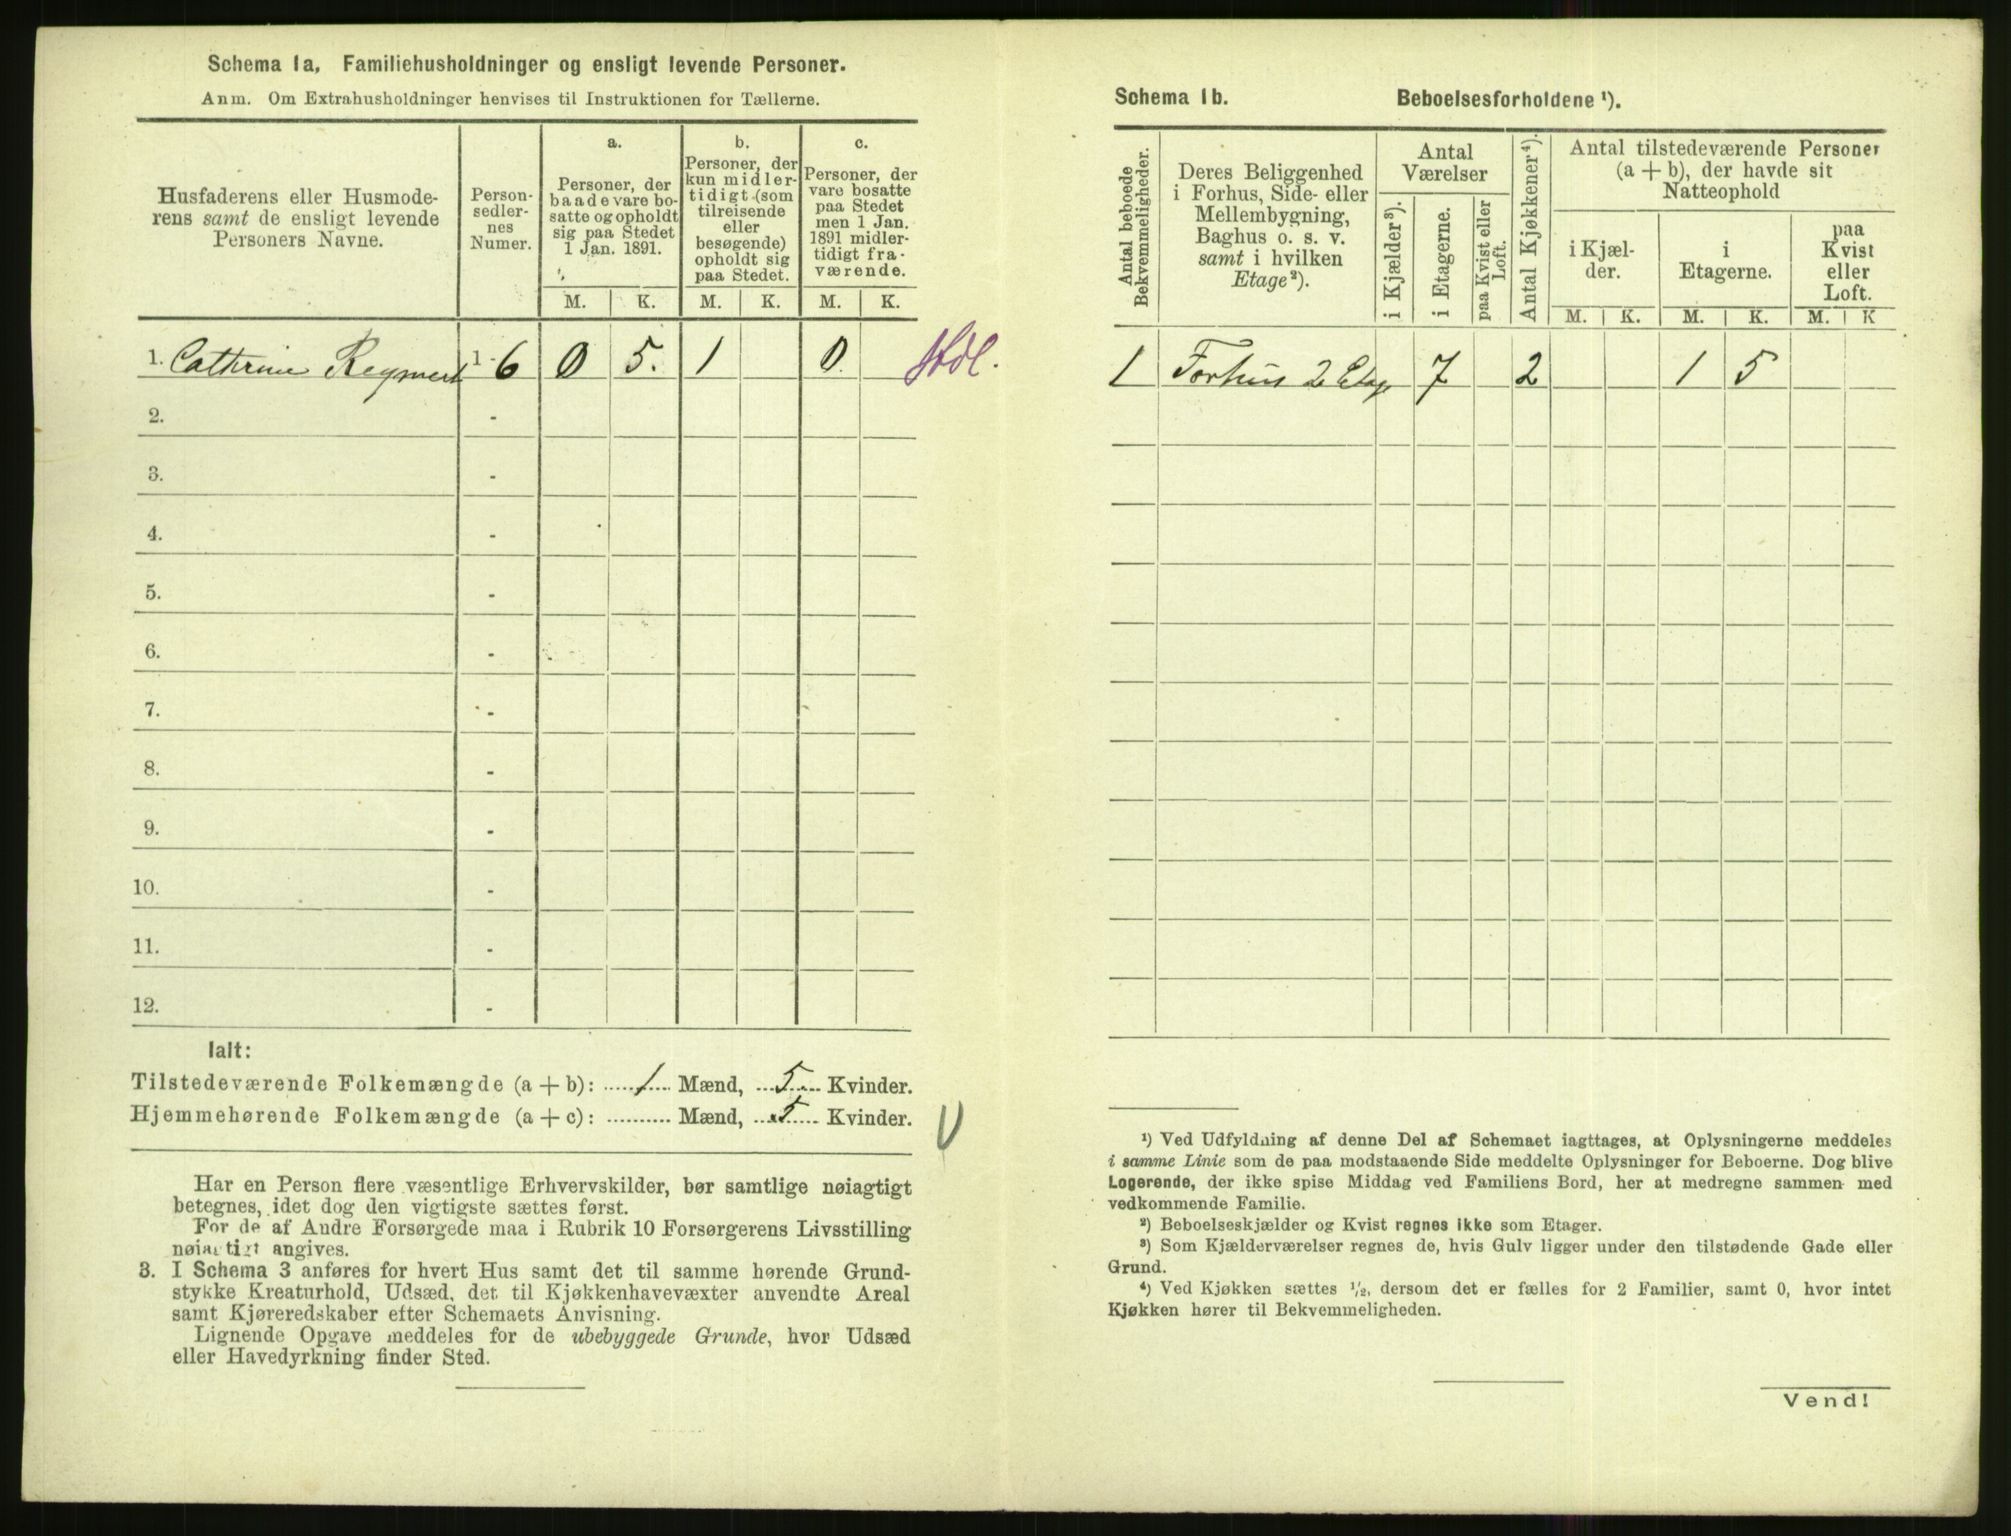 Schema 1a, Familiehusholdninger og ensligt levende Personer.
Anm. Om Extrahusholdninger henvises til Instruktionen for Tællerne.
Husfaderens eller Husmode-
rens samt de ensligt levende
Personers Navne.
Person-
sedler-
nes
Numer.
a.
Personer, der
baade vare bo-
satte og opholdt
sig paa Stedet
1 Jan. 1891.
b.
Personer, der
kun midler-
tidigt (som
tilreisende
eller
besøgende)
opholdt sig
paa Stedet.
c.
Personer, der
vare bosatte
paa Stedet
men 1 Jan.
1891 midler-
tidigt fra-
værende.
M. K. M. K. M. K.
1. Cathrine Reymert 1-6 0 5. 1 0.
2. -
3. -
4. -
5. -
6. -
7. -
8. -
9. -
10. -
11. -
12. -
Ialt:
Tilstedeværende Folkemængde (a + b): 1 Mænd, 5 Kvinder.
Hjemmehørende Folkemængde (a + c): Mænd, 5 Kvinder.
Har en Person flere væsentlige Erhvervskilder, bør samtlige nøiagtigt
betegnes, idet dog den vigtigste sættes først.
For de af Andre Forsørgede maa i Rubrik 10 Forsørgerens Livsstilling
nøiagtigt angives.
3. I Schema 3 anføres for hvert Hus samt det til samme hørende Grund-
stykke Kreaturhold, Udsæd, det til Kjøkkenhavevæxter anvendte Areal
samt Kjøreredskaber efter Schemaets Anvisning.
Lignende Opgave meddeles for de ubebyggede Grunde, hvor Udsæd
eller Havedyrkning finder Sted.
Schema 1b. Beboelsesforholdene ¹).
Antal beboede
Bekvemmeligheder.
Deres Beliggenhed
i Forhus, Side- eller
Mellembygning,
Baghus o. s. v.
samt i hvilken
Etage²).
Antal
Værelser
i Kjælder³).
i Etagerne.
paa Kvist eller
Loft.
Antal Kjøkkener⁴).
Antal tilstedeværende Personer
(a + b), der havde sit
Natteophold
i Kjæl-
der.
i
Etagerne.
paa
Kvist
eller
Loft.
M. K. M. K. M. K
1 Forhus 2 Etage 7 2 1 5
¹) Ved Udfyldning af denne Del af Schemaet iagttages, at Oplysningerne meddeles
i samme Linie som de paa modstaaende Side meddelte Oplysninger for Beboerne. Dog blive
Logerende, der ikke spise Middag ved Familiens Bord, her at medregne sammen med
vedkommende Familie.
²) Beboelseskjælder og Kvist regnes ikke som Etager.
³) Som Kjælderværelser regnes de, hvis Gulv ligger under den tilstødende Gade eller
Grund.
⁴) Ved Kjøkken sættes ½, dersom det er fælles for 2 Familier, samt 0, hvor intet
Kjøkken hører til Bekvemmeligheden.
Vend!